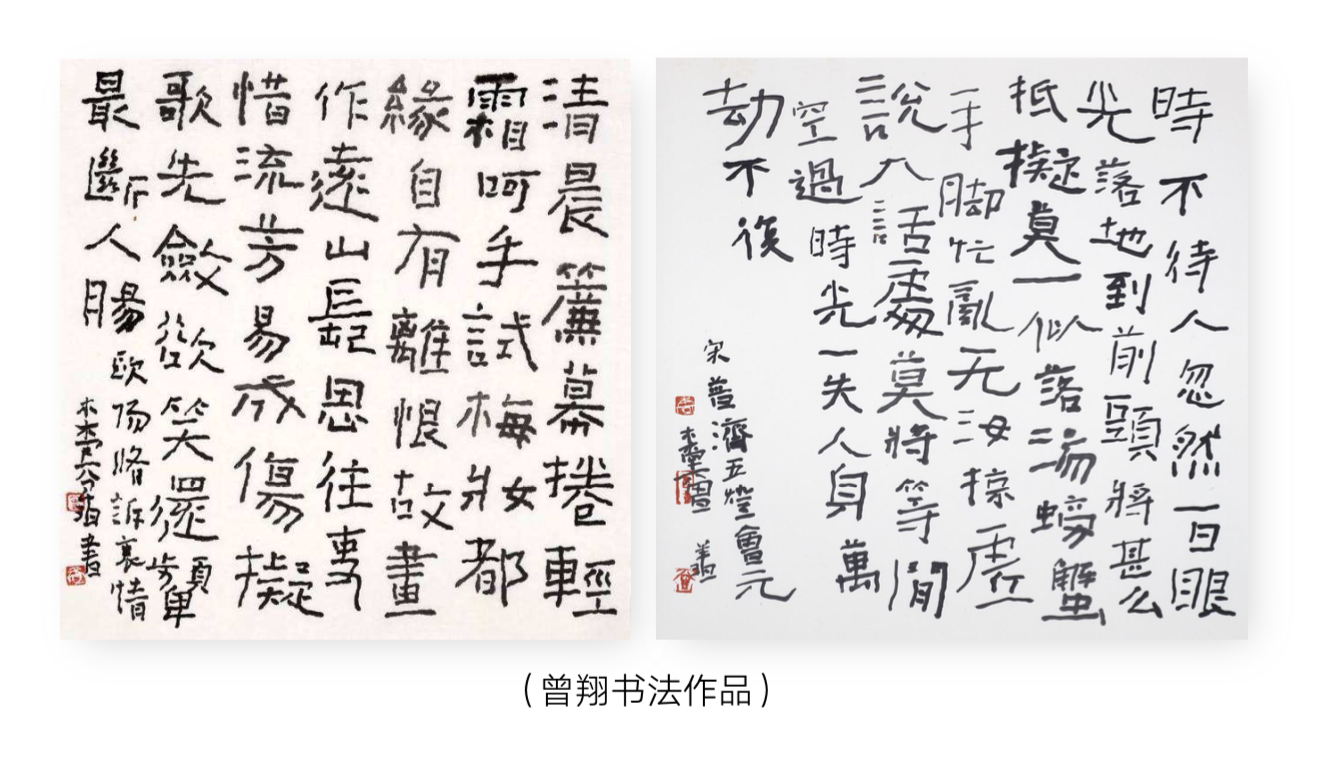 清晨簾幕捲輕
霜呵手試梅妝都
緣自有離恨故畫
作遠山長思往事
惜流芳易成傷擬
歌先斂欲笑還顰
最斷人腸
歐陽脩訴衷情
曾翔書
時不待人忽然一日眼
光落地到前頭將甚么
抵擬莫一似落湯螃蟹
手脚忙亂无汝掠虛
說大話處莫將等閒
空過時光一失人身萬
劫不復
宋普濟五燈會元
（曾翔书法作品）